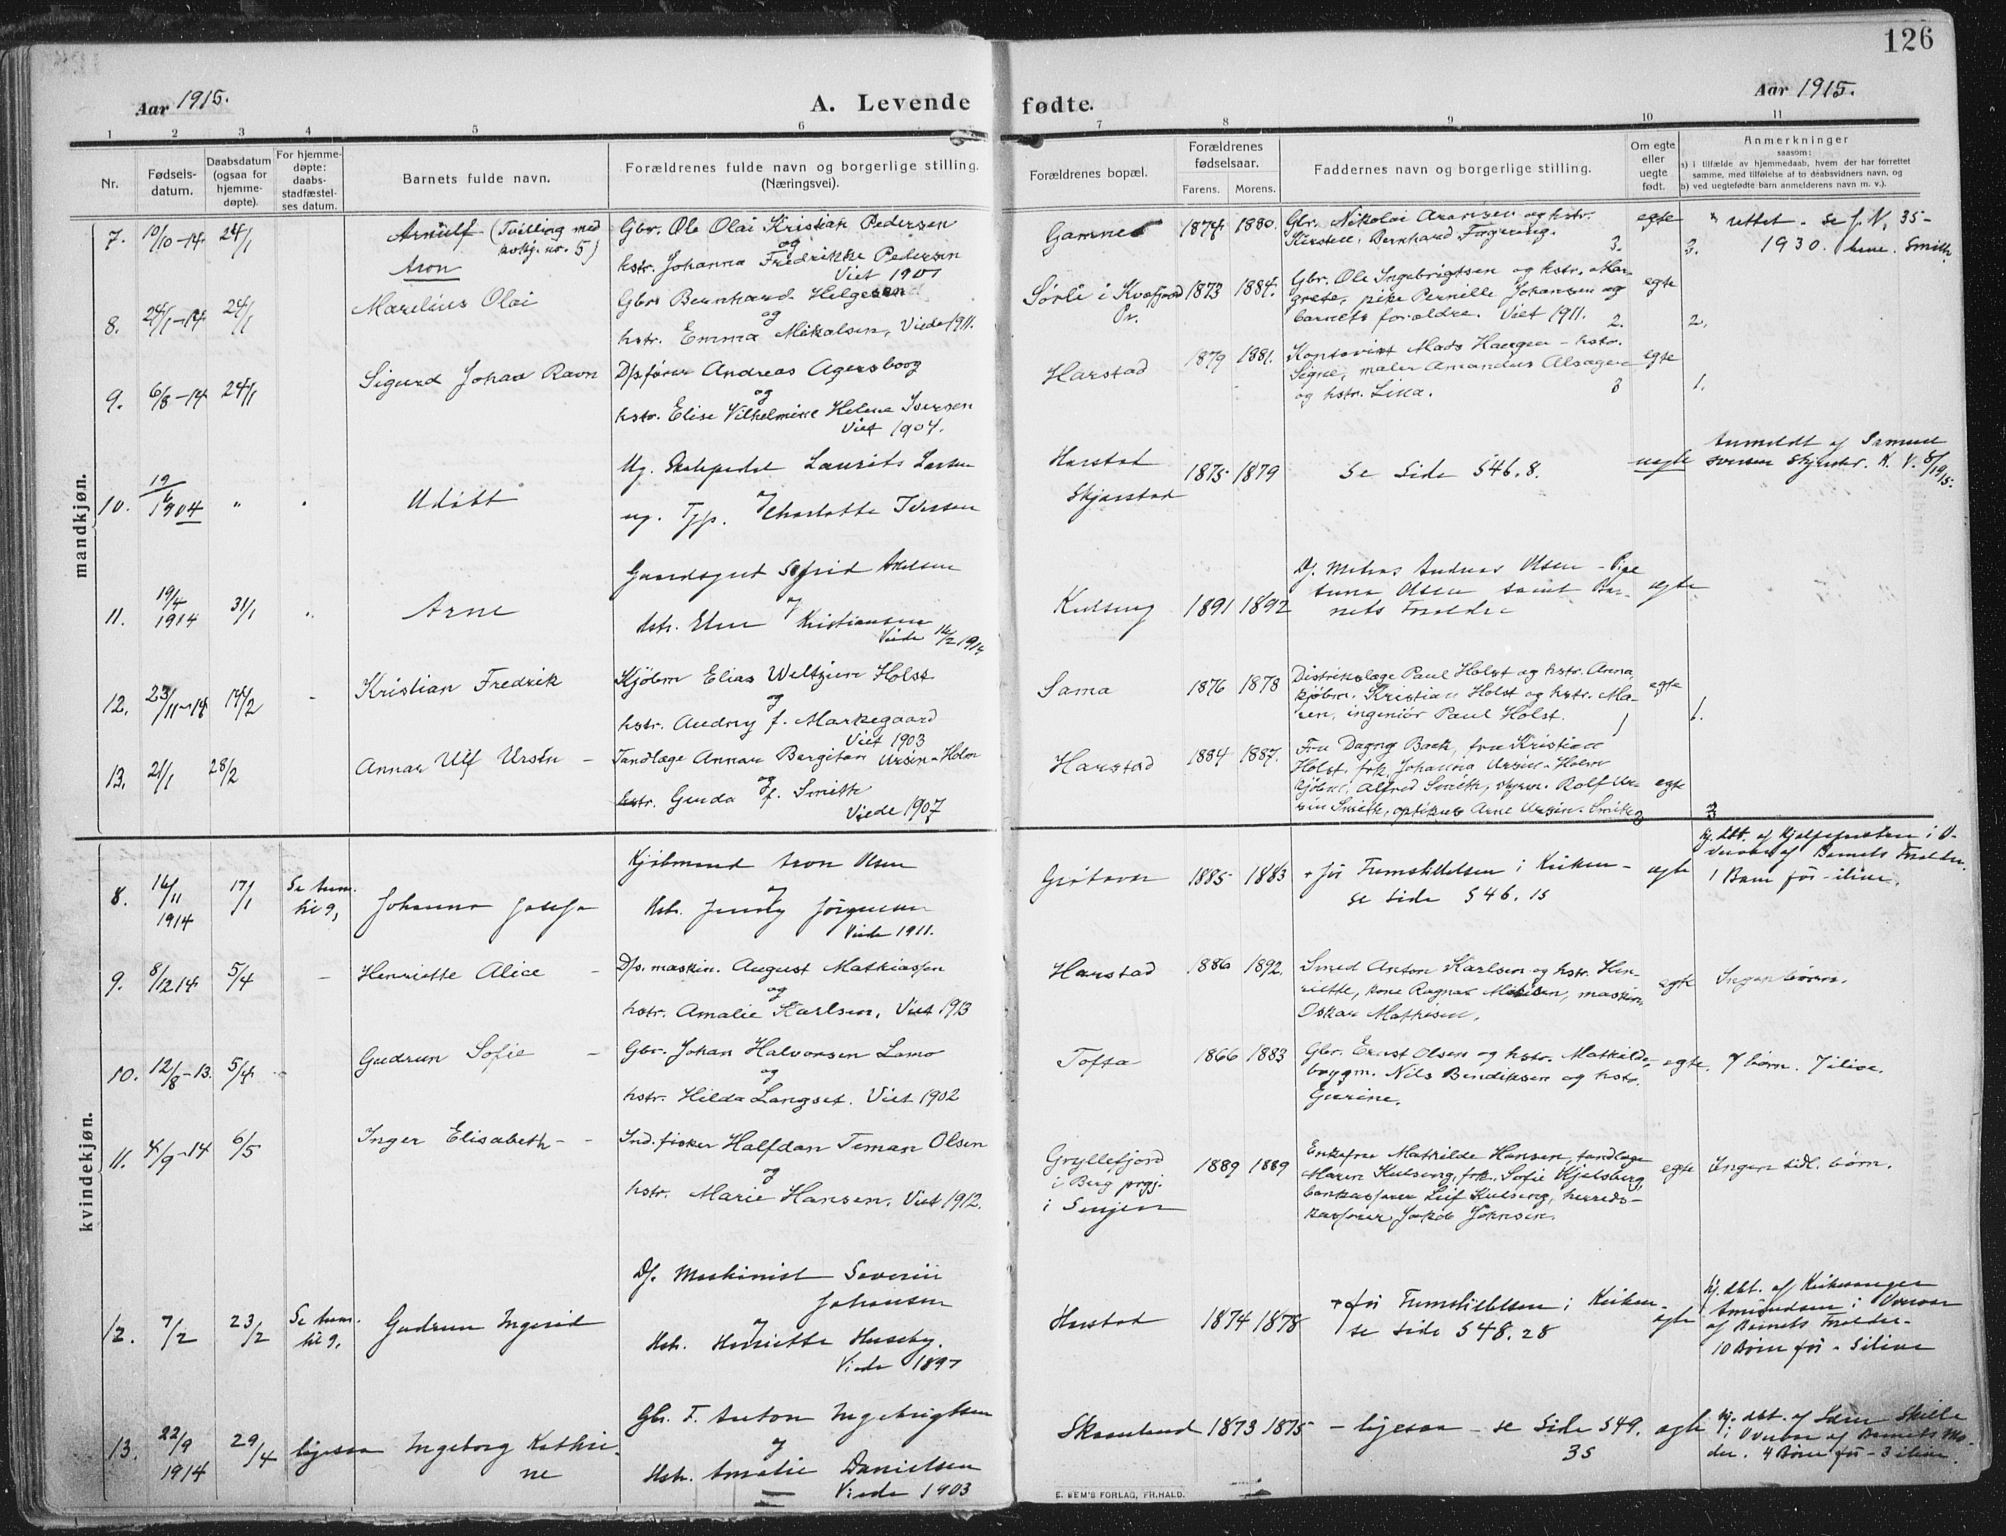 126
Aar 1915.
A. Levende fødte.
Aar 1915.
1 2 3 4 5 6 7 8 9 10 11
Nr.
Fødsels-
datum.
Daabsdatum
(ogsaa for
hjemme-
døpte).
For hjemme-
døpte:
daabs-
stadfæstel-
ses datum.
Barnets fulde navn.
Forældrenes fulde navn og borgerlige stilling.
(Næringsvei).
Forældrenes bopæl.
Forældrenes
fødselsaar.
Farens. Morens.
Faddernes navn og borgerlige stilling.
Om egte
eller
uegte
født.
Anmerkninger
saasom:
a) i tilfælde av hjemmedaab, hvem der har forrettet
samme, med tilføielse af to daabsvidners navn, og
b) ved uegtefødte barn anmelderens navn m. v.).
mandkjøn.
7. 10/10-14 24/1 Arnulf (Tvilling med
nr. 5)
Aron
Gbr. Ole Olai Kristian Pedersen
og
hstr. Johanna Fredrikke Pedersen
Viet 1901
Gamnes 1874 1880.
Gbr. Nikolai Aronsen og hstr.
Kirsten, Bernhard Fagereng.
3.
egte
rettet - se
3. 1930.
8. 24/1-14 24/1 Marelius Olai
Gbr. Bernhard Helgesen
og
hstr. Emma Mikalsen, Viede 1911.
Sørli i Kvæfjord
Pr.
1873 1884.
Gbr. Ole Ingebrigtsen og hstr. Mar-
grete, pike Pernille Johansen og
barnets forældre. Viet 1911.
2.
egte
2.
9. 6/8-14 24/1 Sigurd Johan Ravn
D/sfører Andreas Agersborg
og
hstr. Elise Vilhelmine Helene Iversen
Viet 1904.
Harstad 1879 1881.
Mads Haugen - hstr.
Signe, maler Amandus Alsager
og hstr. Lina.
3
egte
1.
10. 19/6 1904 " " Udøbt
Ug. Laurits Larsen
og
ug. Tjp. Charlotte Iversen
Harstad
Skjærstad
1875 1879
Se Side 546.8.
uegte
Anmeldt af Samuel
Iversen
11. 19/4 1914 31/1 " Arne
Sigfrid Axelsen
og
Hstr. Kristiansen
Viede 1914
Kulseng 1891 1892
Andreas Olsen - Pige
Anna Olsen samt Bar-
nets Forældre
egte
12. 23/11-14 14/2 - Kristian Fredrik
Kjøbm Elias Weltzien Holst
og
hstr. Audny f. Markegaard
Viet 1903
Sama 1876 1878
Distriktslæge Paul Holst og hstr. Anna,
kjøbm. Kristian Holst og hstr. Ma-
ren, ingeniør Paul Holst.
1
egte
1.
13. 21/1 28/2 Annar Ulf Ursin -
Tandlæge Annar Bergiton Ursin-Holm
og
hstr. Gunda f. Smith
Viede 1907
Harstad 1884 1887.
Fru Dagny Back, fru Kristian
Holst, frk. Johanna Ursin-Holm
kjøbm. Alfred Smith, Rolf Ur-
sin Smith, optikus Arne Ursin-Smith
3
egte
3
kvindekjøn.
8. 16/11 1914 17/1 Se rum
til 9,
Johanna Josefa
Kjøbmand Aron Olsen
og
Hstr. Jenny Jørgensen
Viede 1911.
Grøtavær 1885 1883
+ før Fremstillelsen i Kirken -
se Side 546.15
egte
Hj. dbt. af i V-
af Barnets Forældre.
1 Barn før - ilive.
9. 8/12 14 5/4 - Henriette Alice -
D/s. maskin. August Mathiassen
og
hstr. Amalie Karlsen. Viet 1913
Harstad 1886 1892.
Smed Anton Karlsen og hstr. Hen-
riette, kone Ragna Mathisen, maskin.
Oskar Mathisen.
egte
Ingen børn.
10. 12/8-13. 5/4 - Gudrun Sofie -
Gbr. Johan Halvorsen Lamo
og
hstr. Hilda Langset. Viet 1902
Tofta 1866 1883
Gbr. Ernst Olsen og hstr. Mathilde,
bygm. Nils Bendiksen og hstr.
Gurine.
egte.
7 børn. 7 ilive.
11. 4/9-14 6/5 Inger Elisabeth - -
Ind. fisker Halfdan Teman Olsen
og
hstr. Marie Hansen. Viet 1912.
Gryllefjord
i Berg prgj.
i Senjen
1889 1889
Enkefrue Mathilde Hansen, tandlæge
Maren Kulseng, frk. Sofie Kjelsberg,
bankkasserer Leif Kulseng, herreds-
kasserer Jakob Johnsen.
egte
Ingen tidl. børn.
12. 7/2 23/2 Se rum
til 9.
Gudrun Ingerid
D/s. Maskinist Severin
Johansen
og
Hstr. Henriette Huseby.
Viede 1897
Harstad 1874 1878
+ før Fremstillelsen i Kirken -
se Side 548.28
egte
Hj. dbt. af Kirkesanger
Amundsen i
af Barnets Forældre -
10 Børn før - 5 ilive
13. 22/9 1914 29/4 ligesaa Ingeborg Kathri-
ne
Gbr. F. Anton Ingebrigtsen
og
Hstr. Amalie Danielsen
Viede 1903
Skaanland 1873 1875
- ligesaa - se Side 549.
35
egte
Hj. dbt. af
af Barnets Mo-
der. 4 Børn før - 3 ilive.
E. SEM'S FORLAG, FR.HALD.